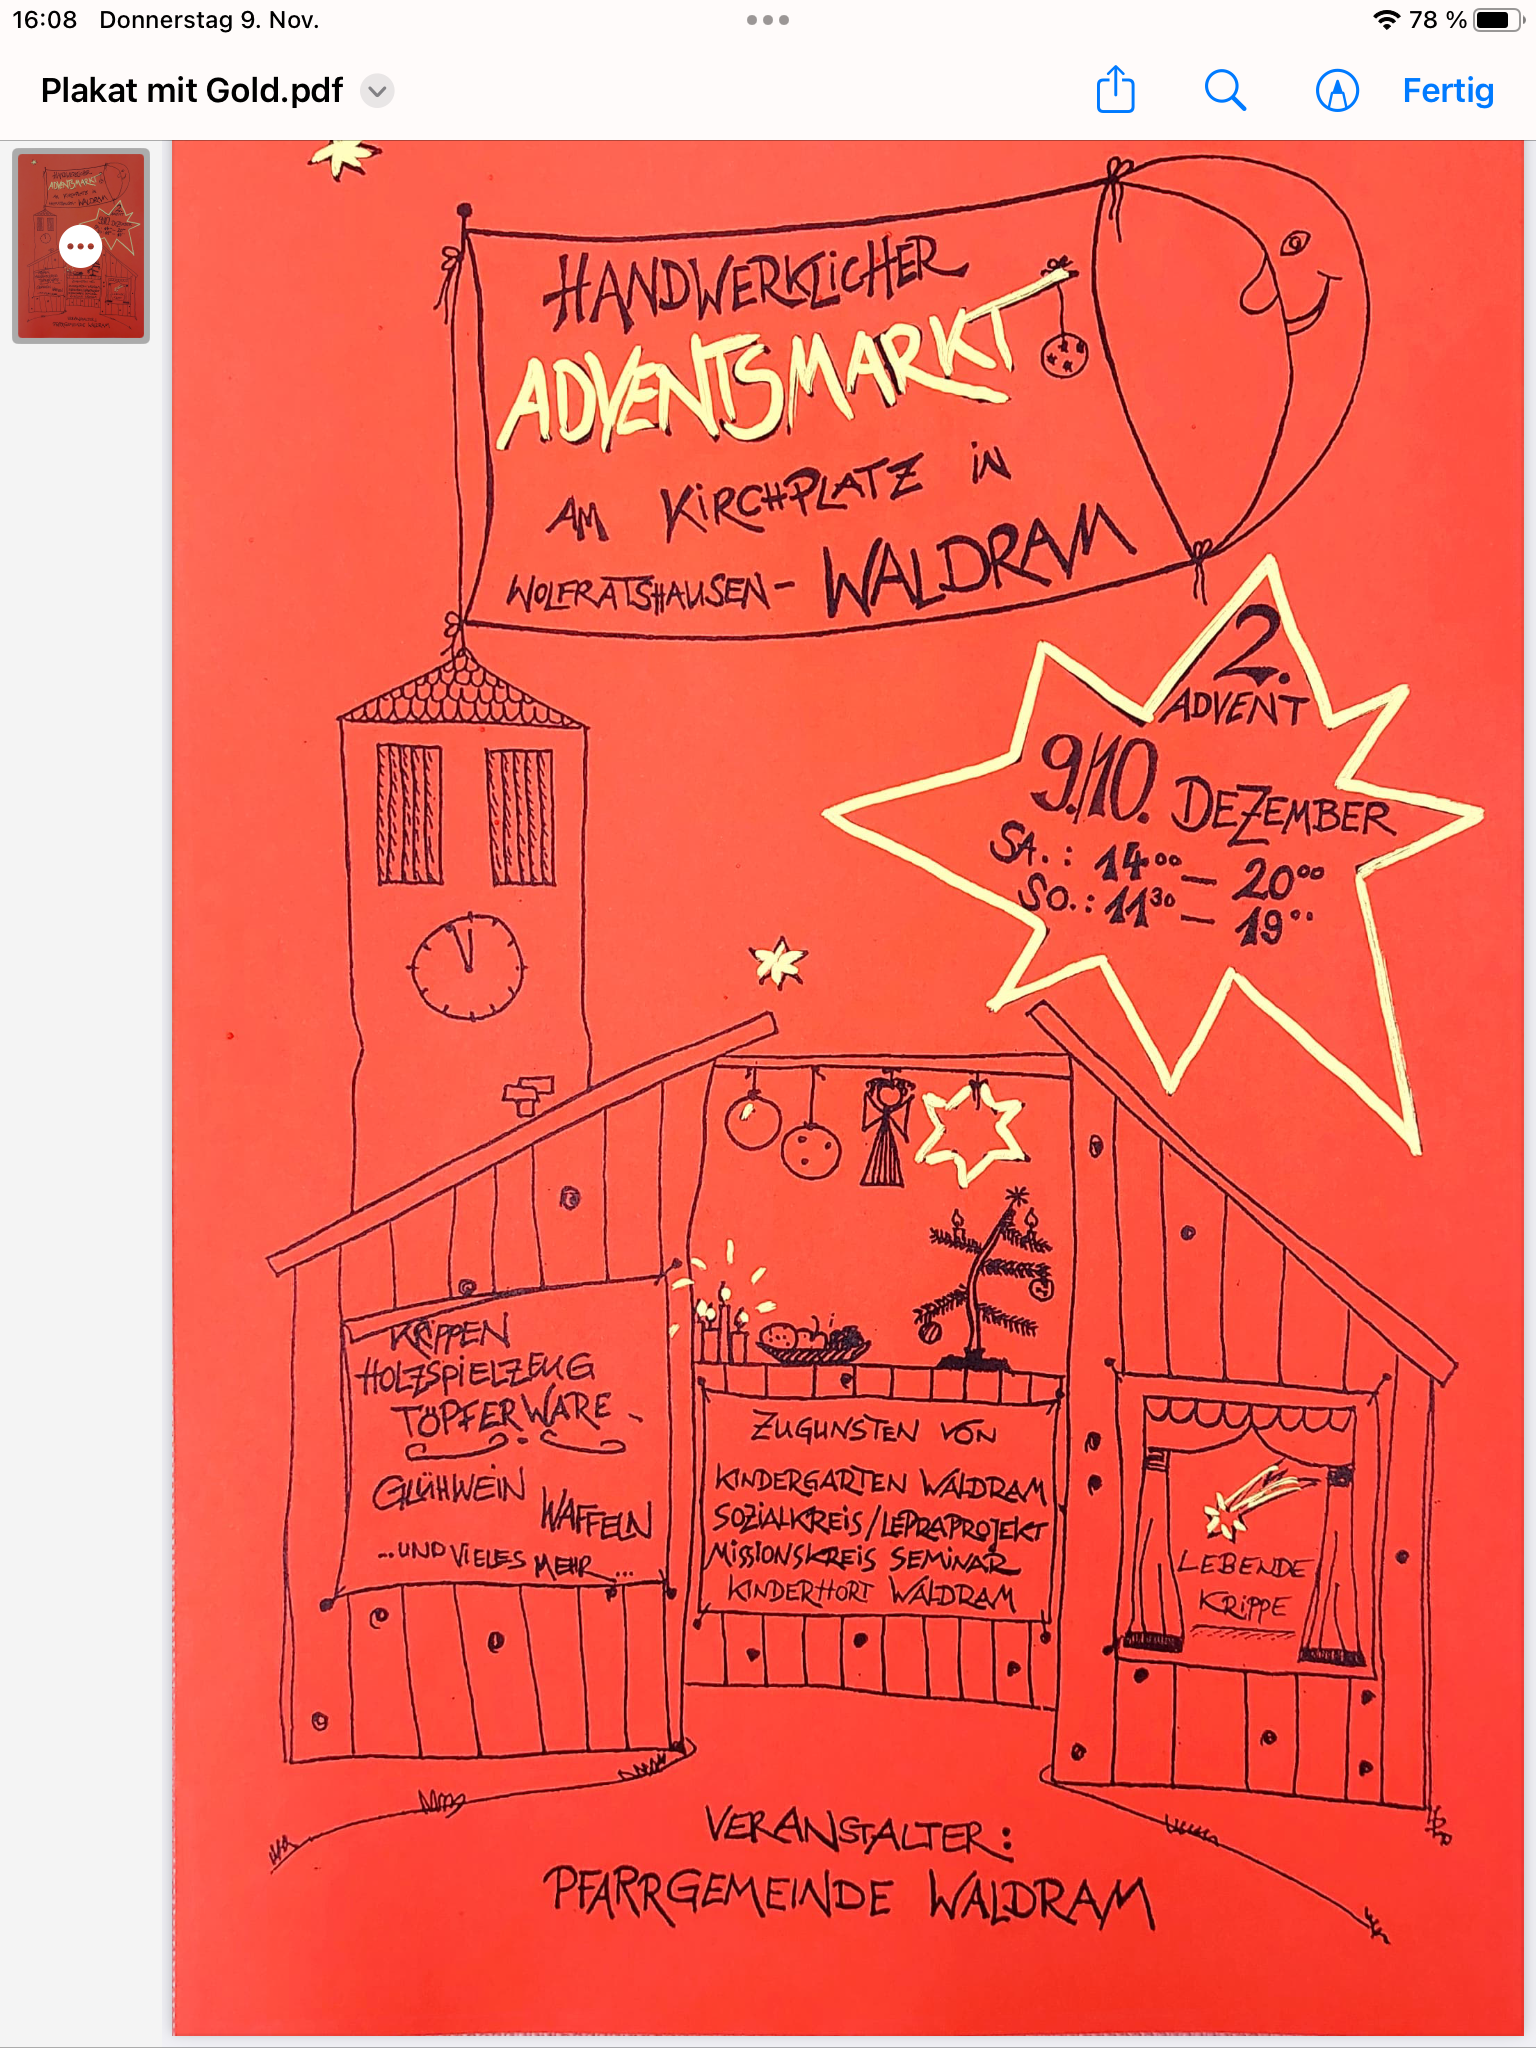 16:08 Donnerstag 9. Nov.
78 %
Plakat mit Gold.pdf
Fertig
HANDWERKLiCHER
ADVENTSMARKT
AM KiRCHPLATZ iN
WOLFRATSHAUSEN- WALDRAM
2.
ADVENT
9./10. DEZEMBER
SA.: 14⁰⁰ — 20⁰⁰
SO.: 11³⁰ — 19⁰⁰
KRiPPEN
HOLZSPiELZEUG
TÖPFERWARE
GLÜHWEiN
WAFFELN
...UND ViELES MEHR...
ZUGUNSTEN VON
KiNDERGARTEN WALDRAM
SOZiALKREiS/LEPRAPROJEKT
MiSSiONSKREiS SEMiNAR
KiNDERHORT WALDRAM
LEBENDE
KRiPPE
VERANSTALTER:
PFARRGEMEINDE WALDRAM